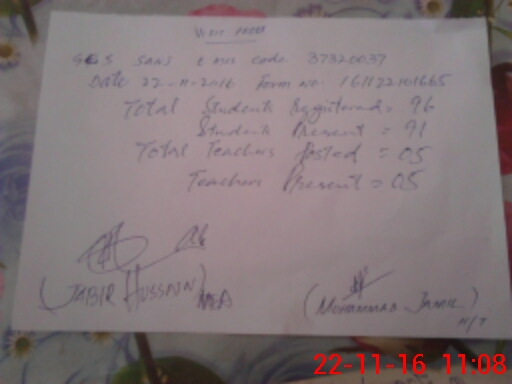 VISIT PROOF
GPS SAAS EMIS code 37320037
Date 22-11-2016 Form no. 161122101665
Total Students Registered = 96
Students Present = 91
Total Teachers Posted = 05
Teachers Present = 05
(JABIR HUSSAIN)
MEA
(MOHAMMAD JAMIL)
H/T
22-11-16 11:08